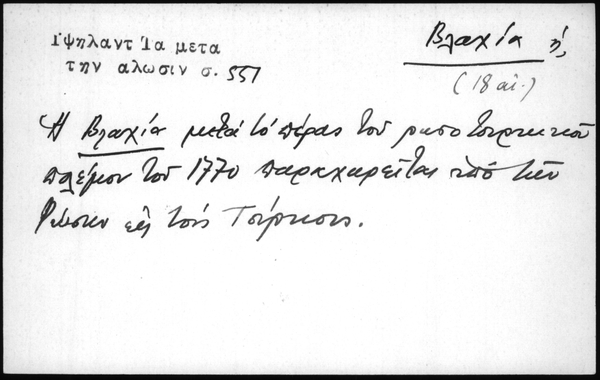 Ὑψηλαντ Τα μετα
την αλωσιν σ. 551
Βλαχία ἡ,
(18 αἰ.)
Ἡ Βλαχία μετά τό πέρας τοῦ ρωσοτουρκικοῦ
πολέμου τοῦ 1770 παραχωρεῖται ὑπό τῶν
Ρώσων εἰς τούς Τούρκους.